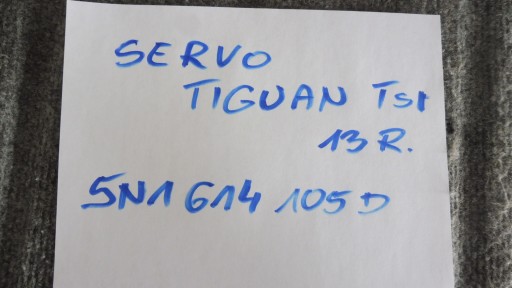 SERVO
TIGUAN TSI
13 R.
5N1 614 105 D